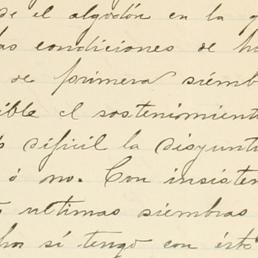 de el algodón en la q
las condiciones de hu
de primera siemb
ible el sostenimient
difícil la disyunti
ó no. Con insisten
ultimas siembras
sí tengo con ésto